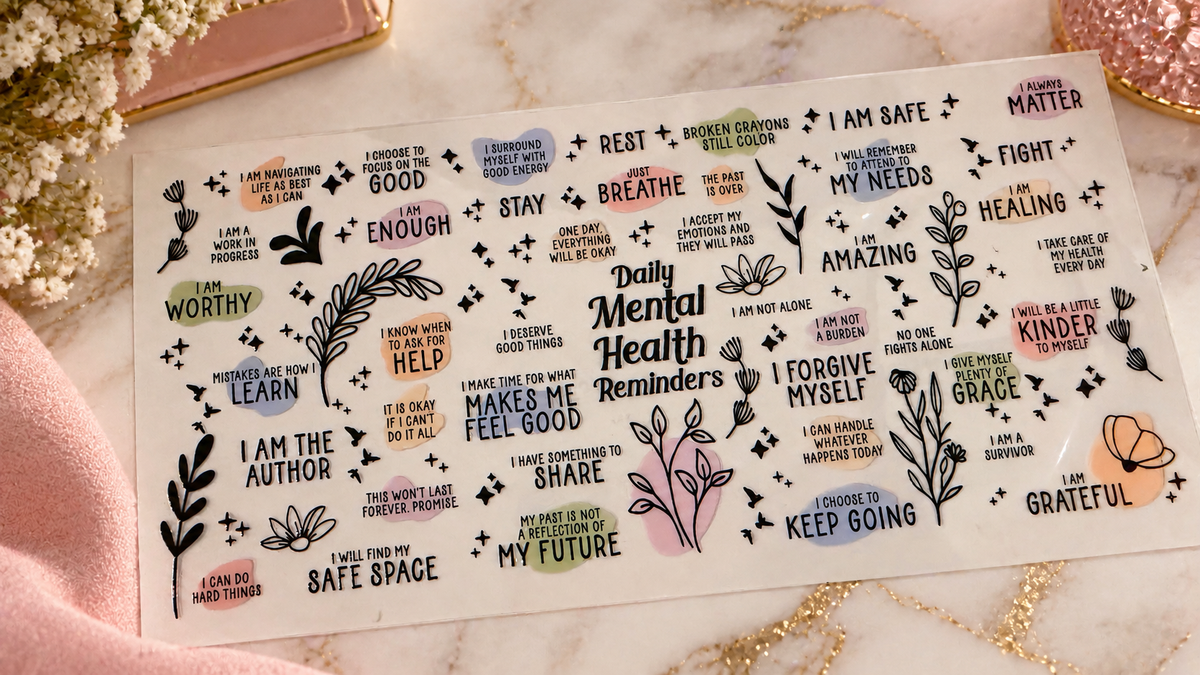 I AM NAVIGATING
LIFE AS BEST
AS I CAN
I CHOOSE TO
FOCUS ON THE
GOOD
I SURROUND
MYSELF WITH
GOOD ENERGY
REST
BROKEN CRAYONS
STILL COLOR
I AM SAFE
I ALWAYS
MATTER
I AM A
WORK IN
PROGRESS
I AM
ENOUGH
STAY
JUST
BREATHE
THE PAST
IS OVER
I WILL REMEMBER
TO ATTEND TO
MY NEEDS
FIGHT
I AM
HEALING
ONE DAY,
EVERYTHING
WILL BE OKAY
I ACCEPT MY
EMOTIONS AND
THEY WILL PASS
I AM
AMAZING
I TAKE CARE OF
MY HEALTH
EVERY DAY
I AM
WORTHY
I KNOW WHEN
TO ASK FOR
HELP
I DESERVE
GOOD THINGS
Daily
Mental
Health
Reminders
I AM NOT ALONE
I AM NOT
A BURDEN
NO ONE
FIGHTS ALONE
I WILL BE A LITTLE
KINDER
TO MYSELF
MISTAKES ARE HOW I
LEARN
IT IS OKAY
IF I CAN'T
DO IT ALL
I MAKE TIME FOR WHAT
MAKES ME
FEEL GOOD
I FORGIVE
MYSELF
I GIVE MYSELF
PLENTY OF
GRACE
I AM THE
AUTHOR
I HAVE SOMETHING TO
SHARE
I CAN HANDLE
WHATEVER
HAPPENS TODAY
I AM A
SURVIVOR
THIS WON'T LAST
FOREVER. PROMISE
MY PAST IS NOT
A REFLECTION OF
MY FUTURE
I CHOOSE TO
KEEP GOING
I AM
GRATEFUL
I CAN DO
HARD THINGS
I WILL FIND MY
SAFE SPACE